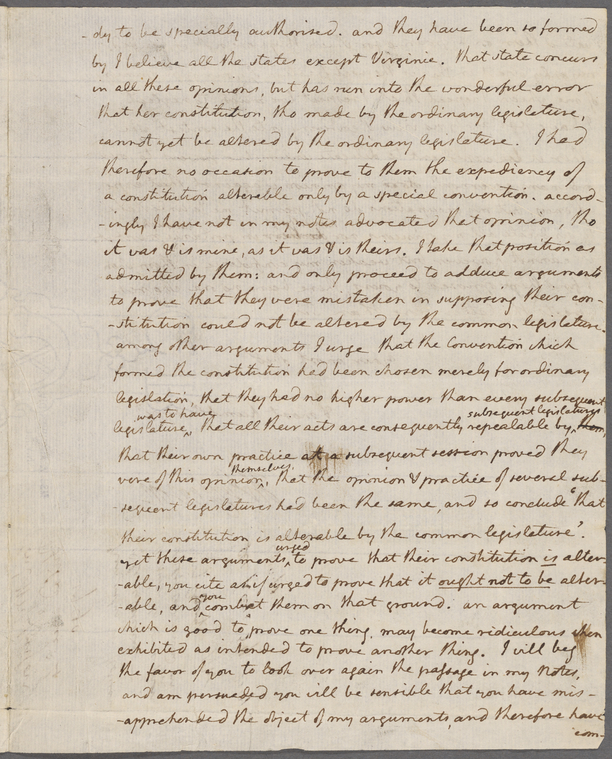 -dy to be specially authorised. and they have been so formed
by I believe all the states except Virginia. that state concurs
in all these opinions, but has run into the wonderful error
that her constitution, tho made by the ordinary legislature,
cannot yet be altered by the ordinary legislature. I had
therefore no occasion to prove to them the expediency of
a constitution alterable only by a special convention. accord-
-ingly I have not in my notes advocated that opinion, tho
it was & is mine, as it was & is theirs. I take that position as
admitted by them: and only proceed to adduce arguments
to prove that they were mistaken in supposing their con-
-stitution could not be altered by the common legislature.
among other arguments I urge that the Convention which
formed the constitution had been chosen merely for ordinary
legislation, that they had no higher power than every subsequent
was to have subsequent legislatures
legislature, that all their acts are consequently repealable by them,
that their own practice at a subsequent session proved they
themselves,
were of this opinion, that the opinion & practice of several sub-
-sequent legislatures had been the same, and so conclude 'that
their constitution is alterable by the common legislature'.
urged
yet these arguments to prove that their constitution is alter-
-able, you cite as if urged to prove that it ought not to be alter-
you
-able, and combat them on that ground. an argument
which is good to prove one thing, may become ridiculous when
exhibited as intended to prove another thing. I will beg
the favor of you to look over again the passage in my Notes,
and am persuaded you will be sensible that you have mis-
-apprehended the object of my arguments, and therefore have
com-